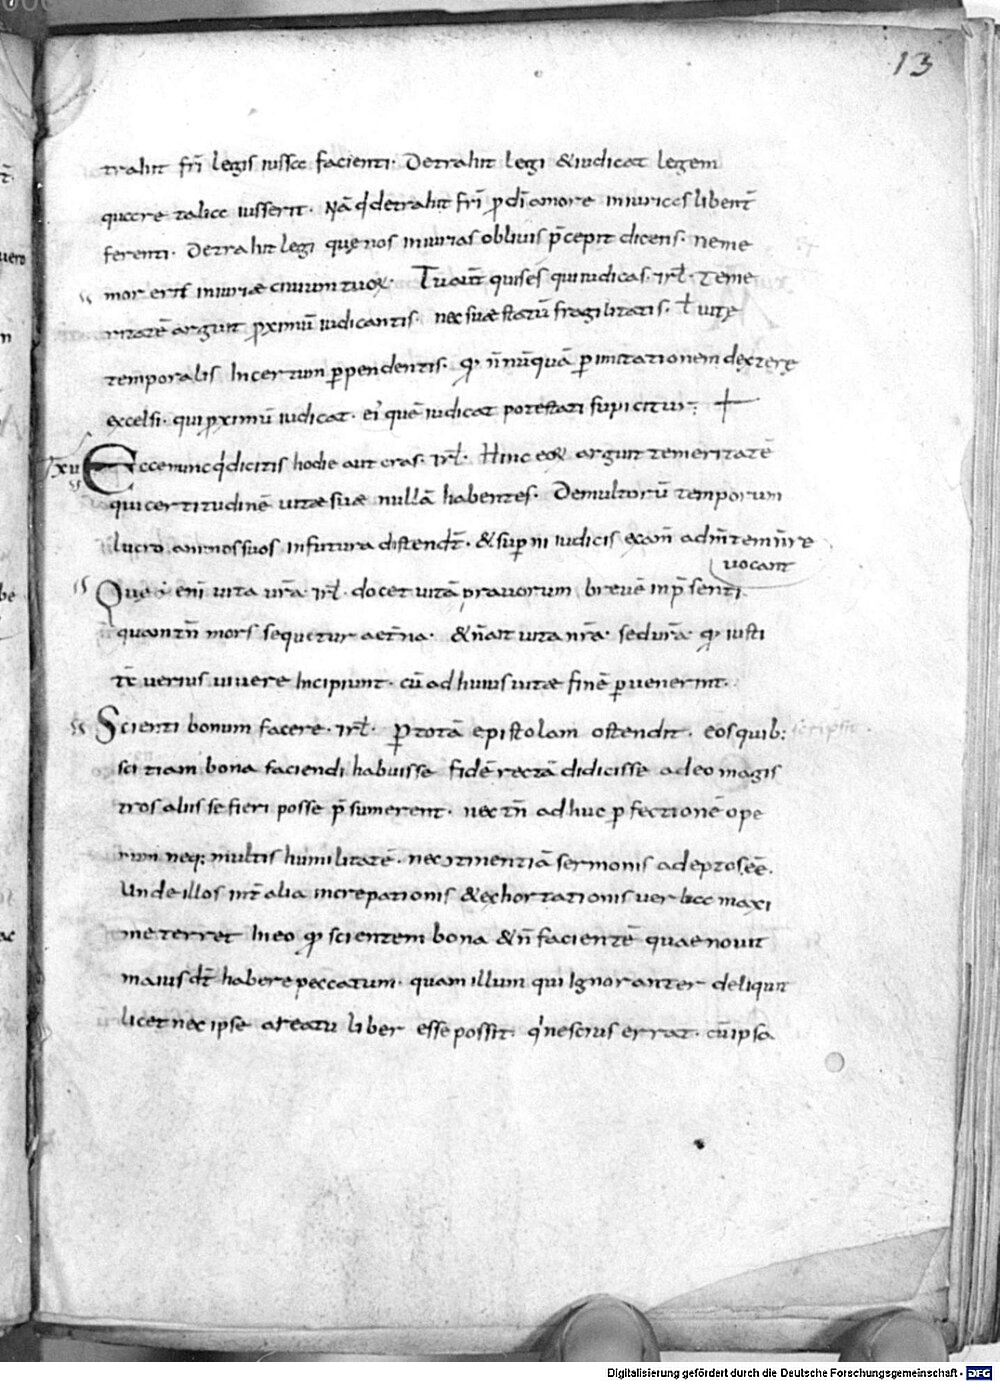 13
trahit fr̄i legis iussa facienti. Detrahit legi & iudicat legem
quare talia iusserit. Nā q̇ detrahit fr̄i ꝓ dī amore iniurias libent̄
ferenti. Detrahit legi quę nos iniurias obliuisci p̄cepit dicens. neme
mor eris iniuriæ ciuium tuoꝝ. Tu aut̄ quis es qui iudicas. irł. Teme
ritatē arguit ꝓximū iudicantis. nec suæ statū fragilitatis. ł uitę
temporalis Incertum ꝑpendentis. qđ n̄nūquā ꝑ imitationem dexterę
excelsi. qui ꝓximū iudicat. ei' quē iudicat potestati supicitur; +
xu Ecce nunc q̇ dicitis hodie aut cras. irł. Hinc eoꝝ arguit temeritatē
qui certitudinē uitæ suæ nullā habentes. De multorū temporum
lucro animos suos in futura distendt̄. & supni iudicis exam̄ ad
uocant
Quę ÷ eni uita ur̄a. irł. docet uitā prauorum breuē in p̄senti.
quam tn̄ mors sequetur aet̄na. & n̄ ait uita nr̄a. sed ur̄a. qđ iusti
tc̄ uerius uiuere Incipiunt. cū ad huius uitæ finē ꝑuenerint.
Scienti bonum facere. irł. Ꝑ totā epistolam ostendit. eos quib;
scientiam bona faciendi habuisse fidē rectā didicisse adeo magis
tros aliis se fieri posse p̄sumerent. nec tn̄ adhuc ꝑfectionē ope
rum neq; multis humilitatē. nec continentiā sermonis adeptos. eē.
Unde illos int̄ alia increpationis & exhortationis uerba maxi
me terret In eo qđ scientem bona & n̄ facientē quae nouit
maius dt̄ habere peccatum. quam illum qui Ignoranter deliquit
licet nec ipse a reatu liber esse possit. q' nescius errat. cū ipsa
Digitalisierung gefördert durch die Deutsche Forschungsgemeinschaft - DFG